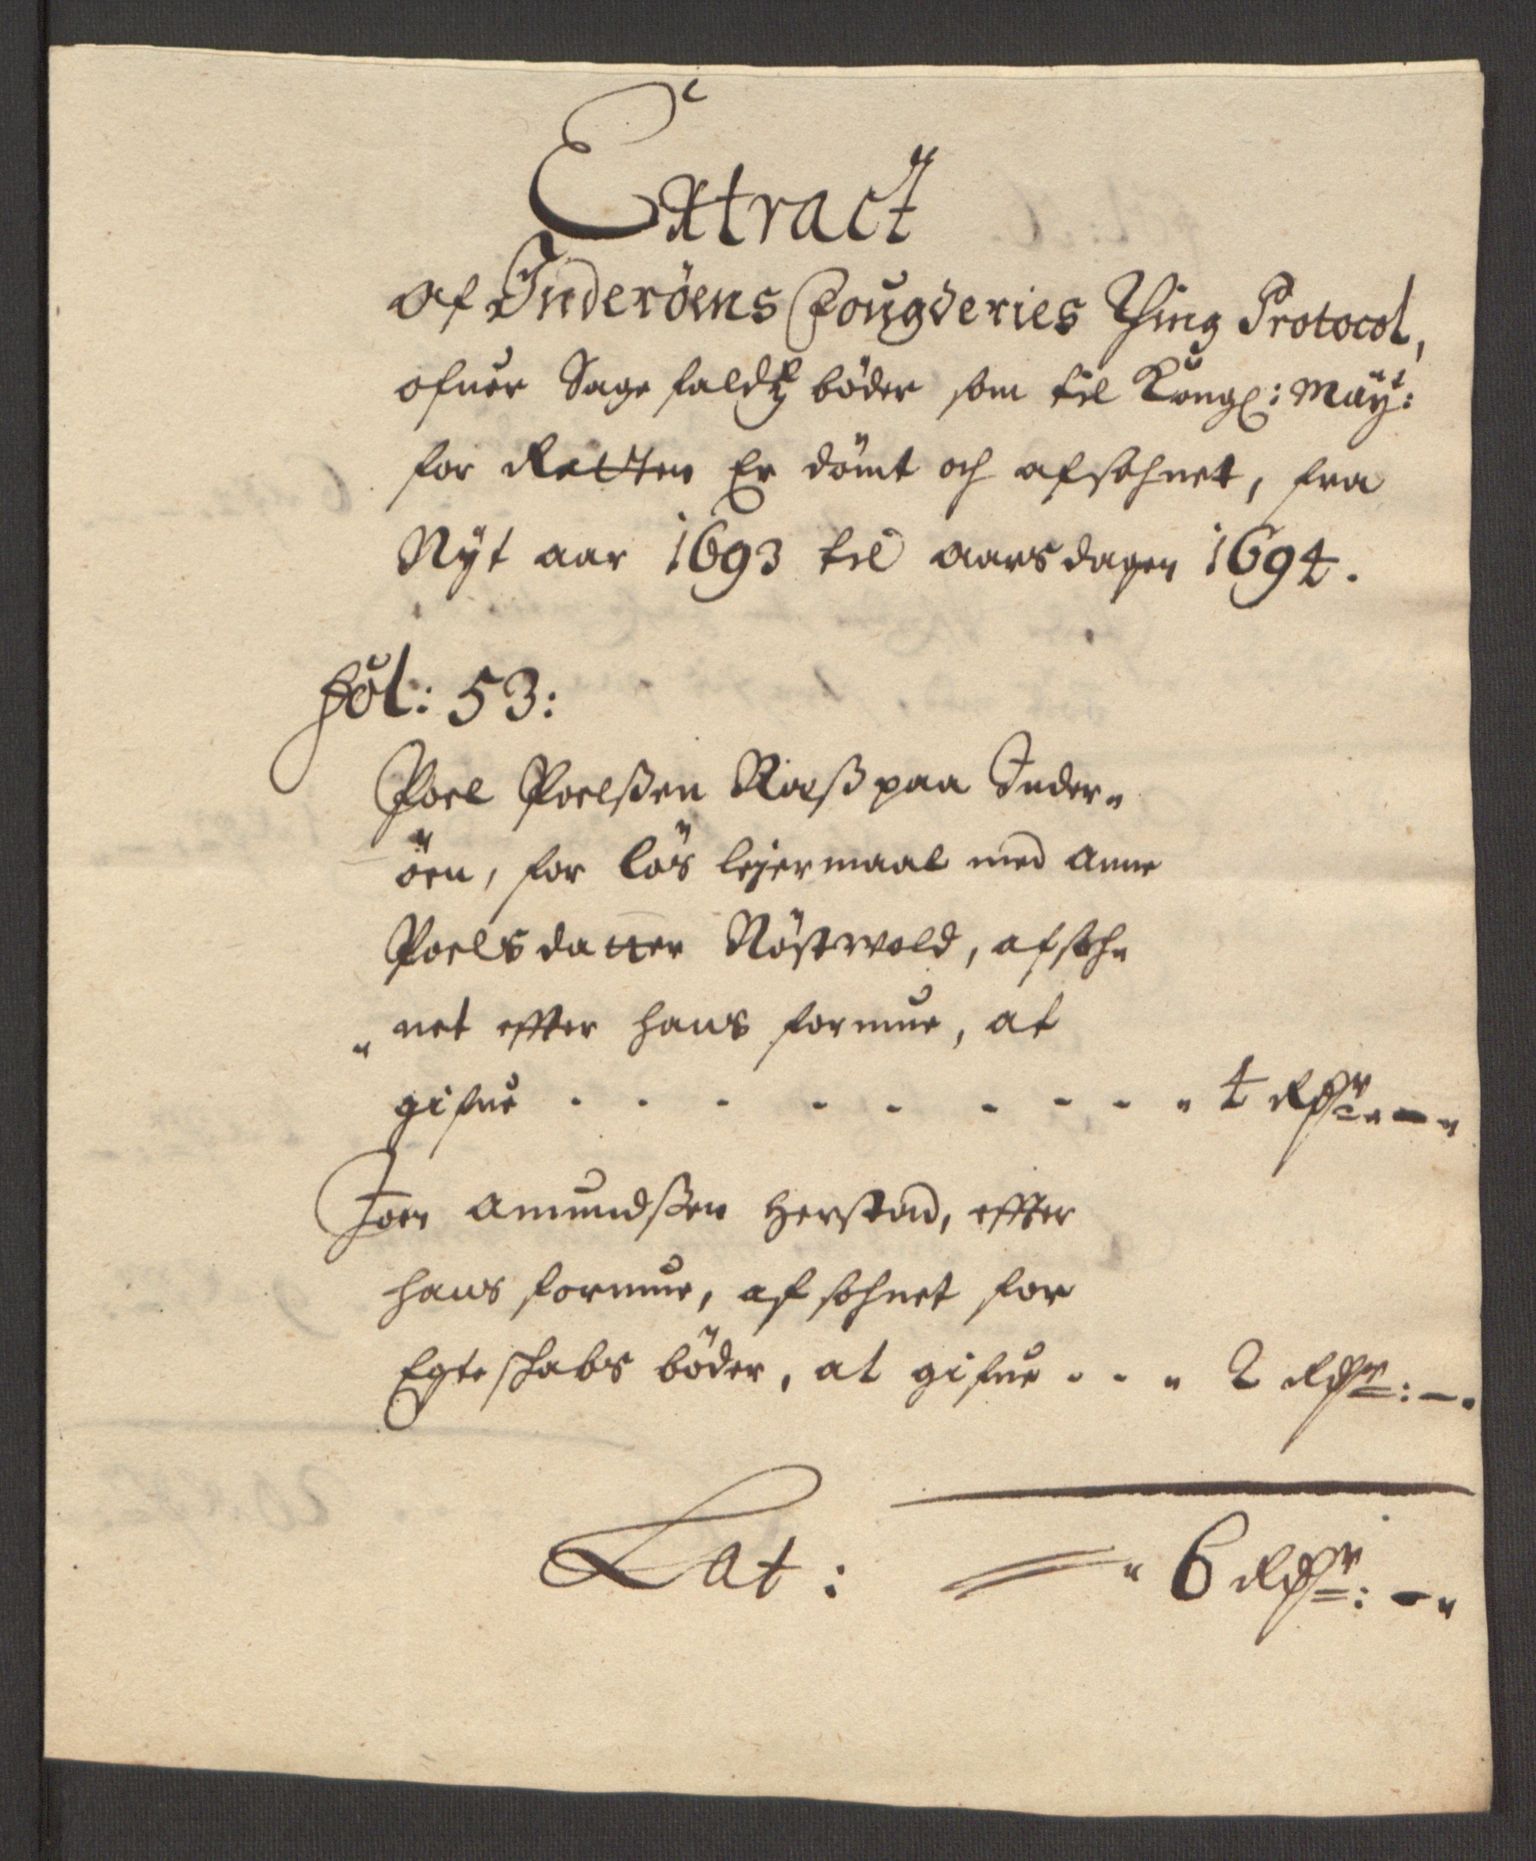 Extract
Af Inderöens Fougderies Thing Protocol,
ofuer Sage falds bøder som til Kongl: Maÿt:
for Retten Er dömt och afsohnet, fra
Nÿt aar 1693 til aarsdagen 1694.
Fol: 53:
Poel Poelßen Roeß paa Inder-
öen, for løs lejermaal med Anne
Poelsdatter Röstwold, afsoh-
net effter hans formue, at
gifue . . . . . . . . . 4 Rdr: -
Joen Amundßen Herstad, effter
hans formue, afsohnet for
Egteskabs böder, at gifue . . . 2 Rdr: -
Lat: 6 Rdr: -